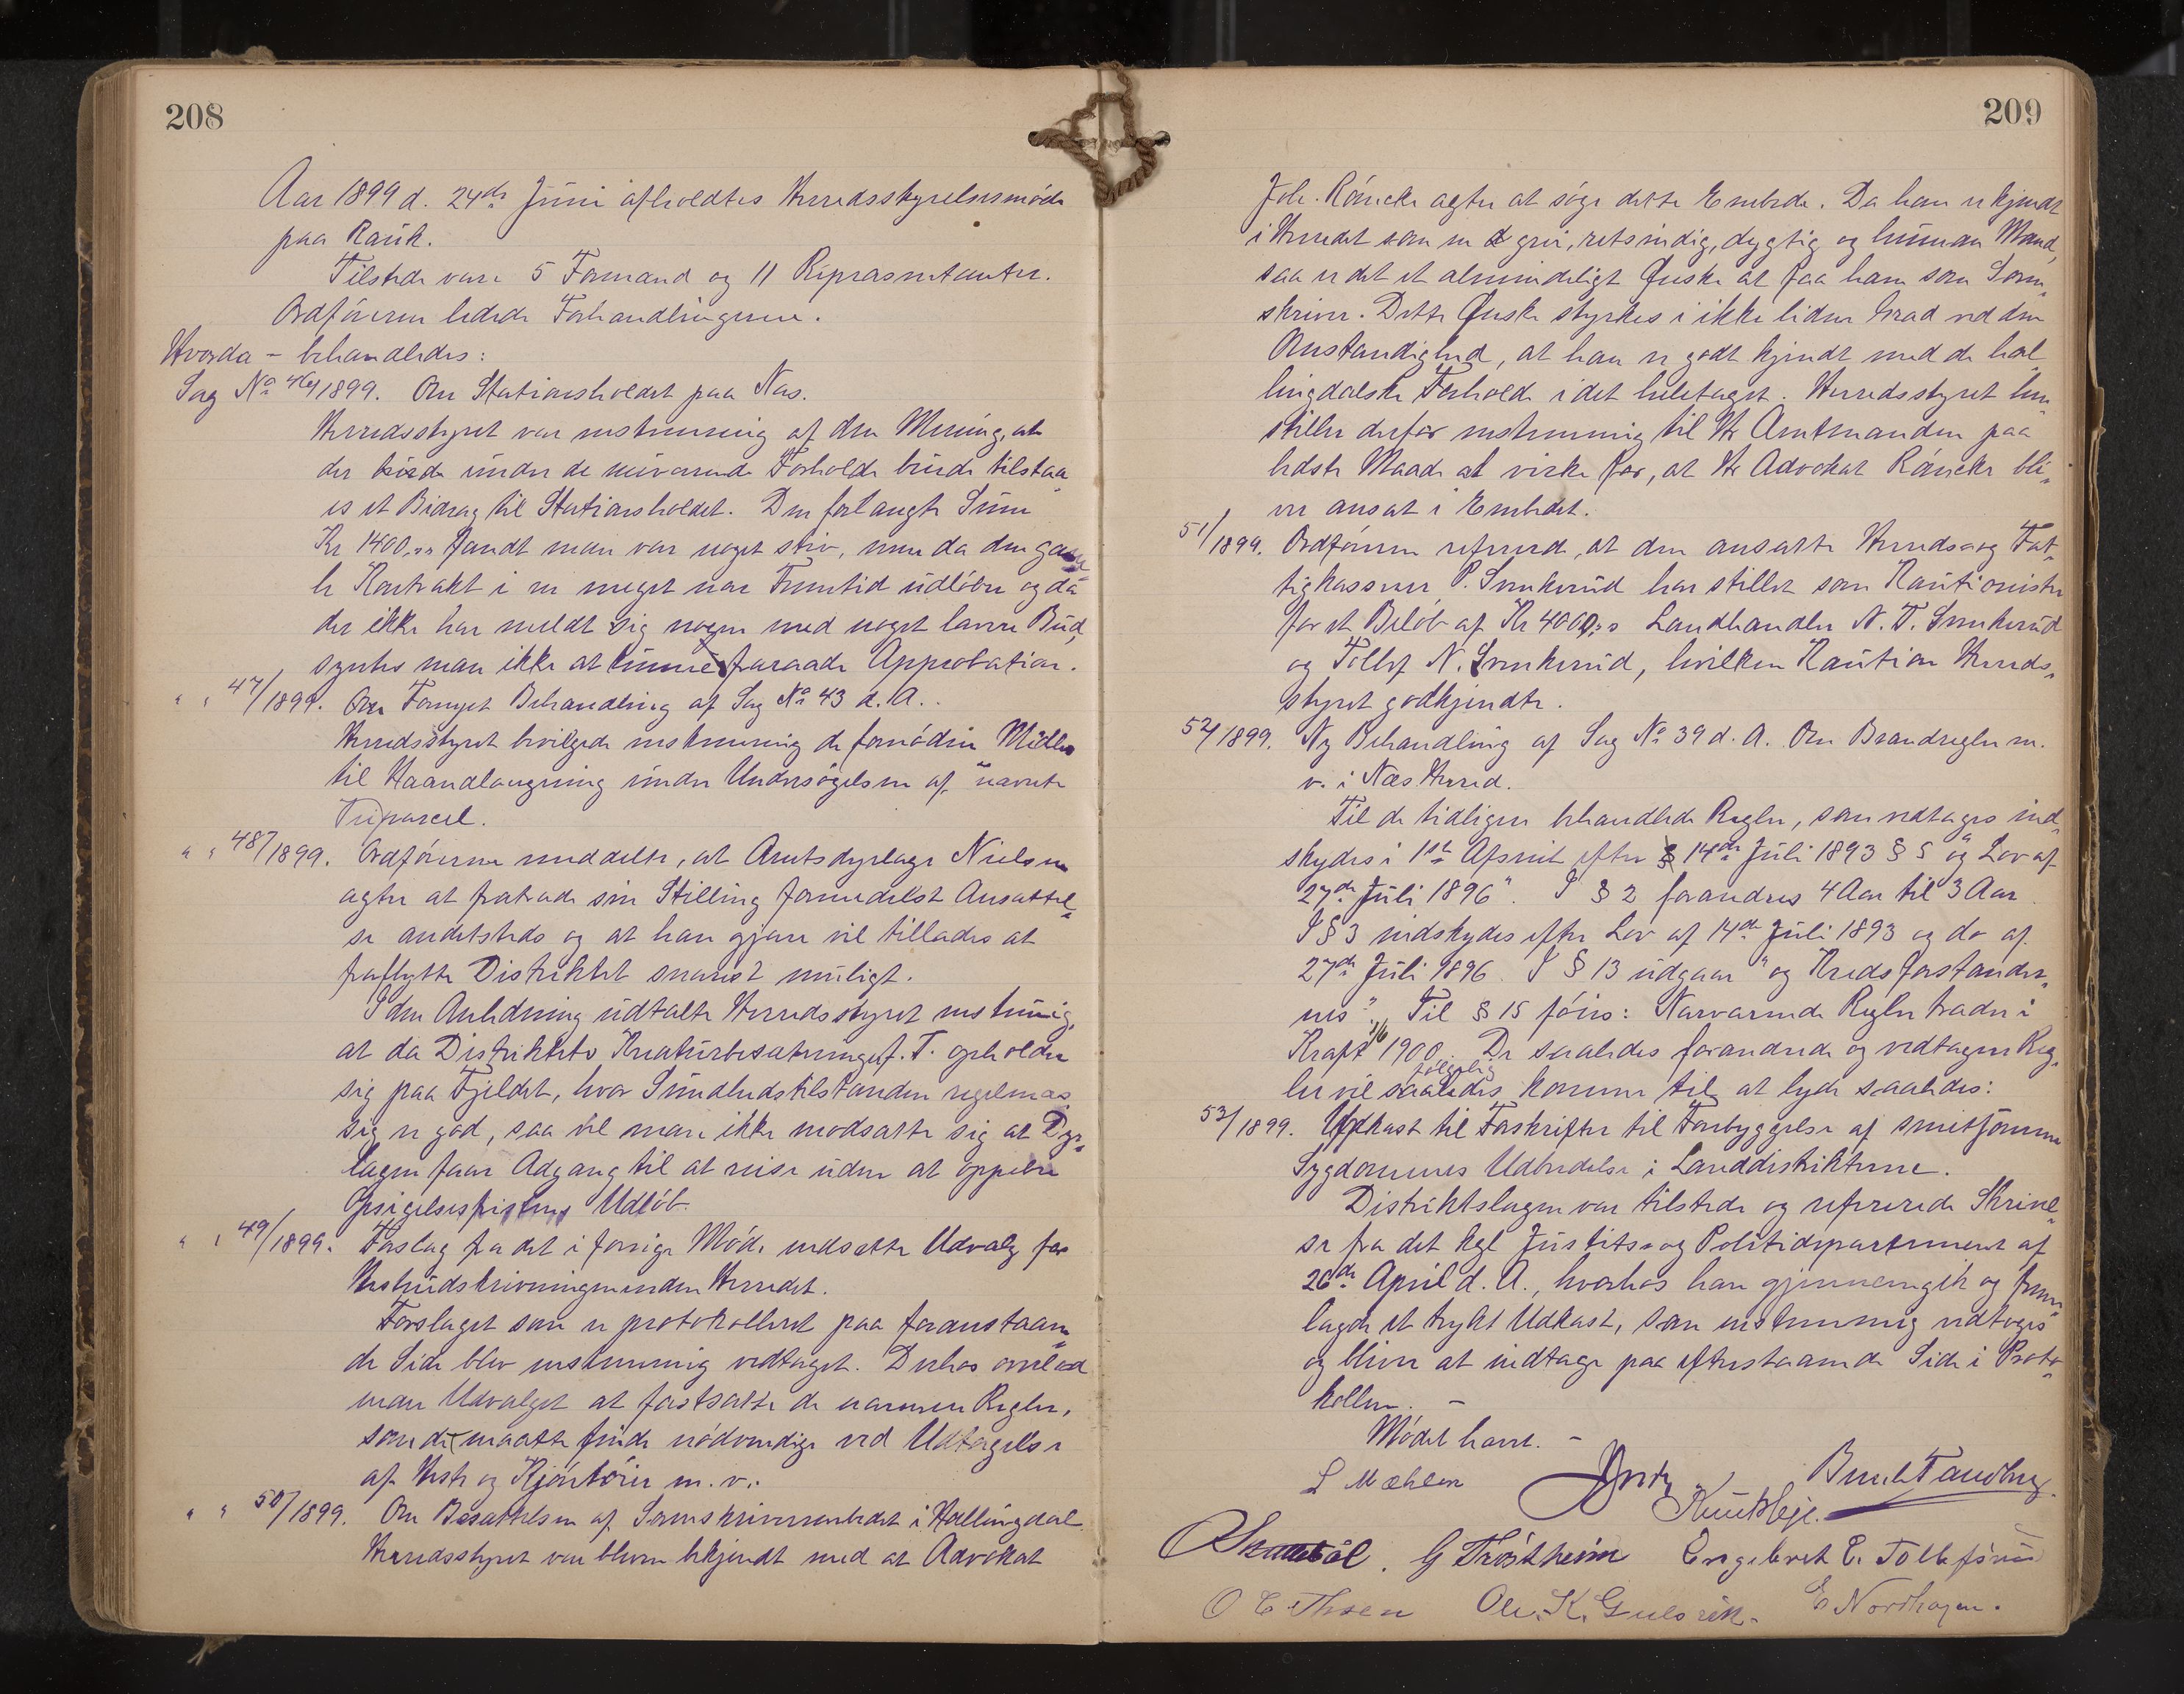 208
Aar 1899 d. 24de Juni afholdtes Herredsstyrelsesmöde
paa Rauk.
Tilstede vare 5 Formænd og 11 Repræsentanter.
Ordföreren ledede Forhandlingerne.
Hvorda - behandledes:
Sag No 46/1899. Om Stationsholdet paa Næs.
Herredsstyret var enstemmig af den Mening, at
der burde under de nuværende Forholde burde tilstaa„
es et Bidrag til Stationsholdet. Den forlangte Sum
Kr 1400,00 fandt man var noget stiv, men da den gam„
le Kontrakt i en meget nær Fremtid udlöber og da
der ikke har meldt sig nogen med noget lavere Bud,
syntes man ikke at kunne fraraade Approbation.
" " 47/1899. Om Fornyet Behandling af Sag No 43 d. A.
Herredsstyret bevilgede enstemmig de fornödne Midler
til Haandlangning under Undersögelsen af nævnte
Veiparcel.
" " 48/1899. Ordföreren meddelte, at Amtsdyrlæge Nielsen
agter at fratræde sin Stilling formedelst Ansættel„
se andetsteds og at han gjerne vil tillades at
fraflytte Distriktet snarest muligt.
I den Anledning udtalte Herredsstyret enstemig,
at da Distriktets Kreaturbesætninger f. T. opholder
sig paa Fjeldet, hvor Sundhedstilstanden regelmæs„
sig er god, saa vil man ikke modsætte sig at Dyr„
lægen faar Adgang til at reise uden at oppebie
Opsigelsesfristens Udlöb.
" " 49/1899. Forslag fra det i forrige Möde nedsatte Udvalg for
Hesteudskrivningen inden Herredet.
Forslaget som er protokolleret paa foranstaaen„
de Side blev enstemmig vedtaget. Derhos overlod
man Udvalget at fastsætte de nærmere Regler,
som det maatte finde nödvendige ved Udtagelse
af Heste og Kjöretöier m. v.
" " 50/1899. Om Besættelsen af Sorenskriverembedet i Hallingdal.
Herredsstyret var bleven bekjendt med at Advokat
209
Joh. Röncke agter at söge dette Embede. Da han er kjendt
i Herredet som en grei, retsindig, dygtig og human Mand,
saa er det et almindeligt Ønske at faa ham som Soren„
skriver. Dette Ønske styrkes i ikke liden Grad ved den
Omstændighed, at han er godt kjendt med de hal„
lingdalske Forholde i det heletaget. Herredsstyret hen„
stiller derfor enstemmig til Hr Amtmanden paa
bedste Maade at virke for, at Hr Advokat Röncke bli„
ver ansat i Embedet.
51/1899. Ordföreren refererede, at den ansatte Herreds- og Fat„
tigkasserer P. Smukerud har stillet som Kautionister
for et Belöb af Kr 4000,00 Landhandler N. T. Smukerud
og Tollef N. Smukerud, hvilken Kaution Herreds„
styret godkjendte.
52/1899. Ny Behandling af Sag No 39 d. A. Om Brandregler m.
v. i Næs Herred.
Til de tidligere behandlede Regler, som vedtages ind„
skydes i 1ste Afsnit efter 14de Juli 1893 § 5 "og Lov af
27de Juli 1896". I § 2 forandres 4 Aar til 3 Aar.
I § 3 indskydes efter Lov af 14de Juli 1893 og do af
27de Juli 1896. I § 13 udgaar "og Kredsforstander„
nes". Til § 15 föies: Nærværende Regler træder i
Kraft 1/1 1900. De saaledes forandrede og vedtagne Reg„
ler vil følgelig komme til at lyde saaledes:
53/1899. Udkast til Forskrifter til Forbyggelse af smitsomme
Sygdommes Udbredelse i Landdistrikterne.
Distriktslægen var tilstede og refererede Skrivel„
se fra det kgl Justits- og Politidepartement af
26de April d. A., hvorhos han gjennemgik og frem„
lagde et trykt Udkast, som enstemmig vedtoges
og bliver at indtage paa efterstaaende Side i Proto„
kollen. -
Mödet hævet. -
L Mæhlen Bernt Tandberg
Knut Heje.
G Tröstheim Engebret E. Tollefsrud
O E Thoen Ole. K. Gulsvik. E Nordhagen.